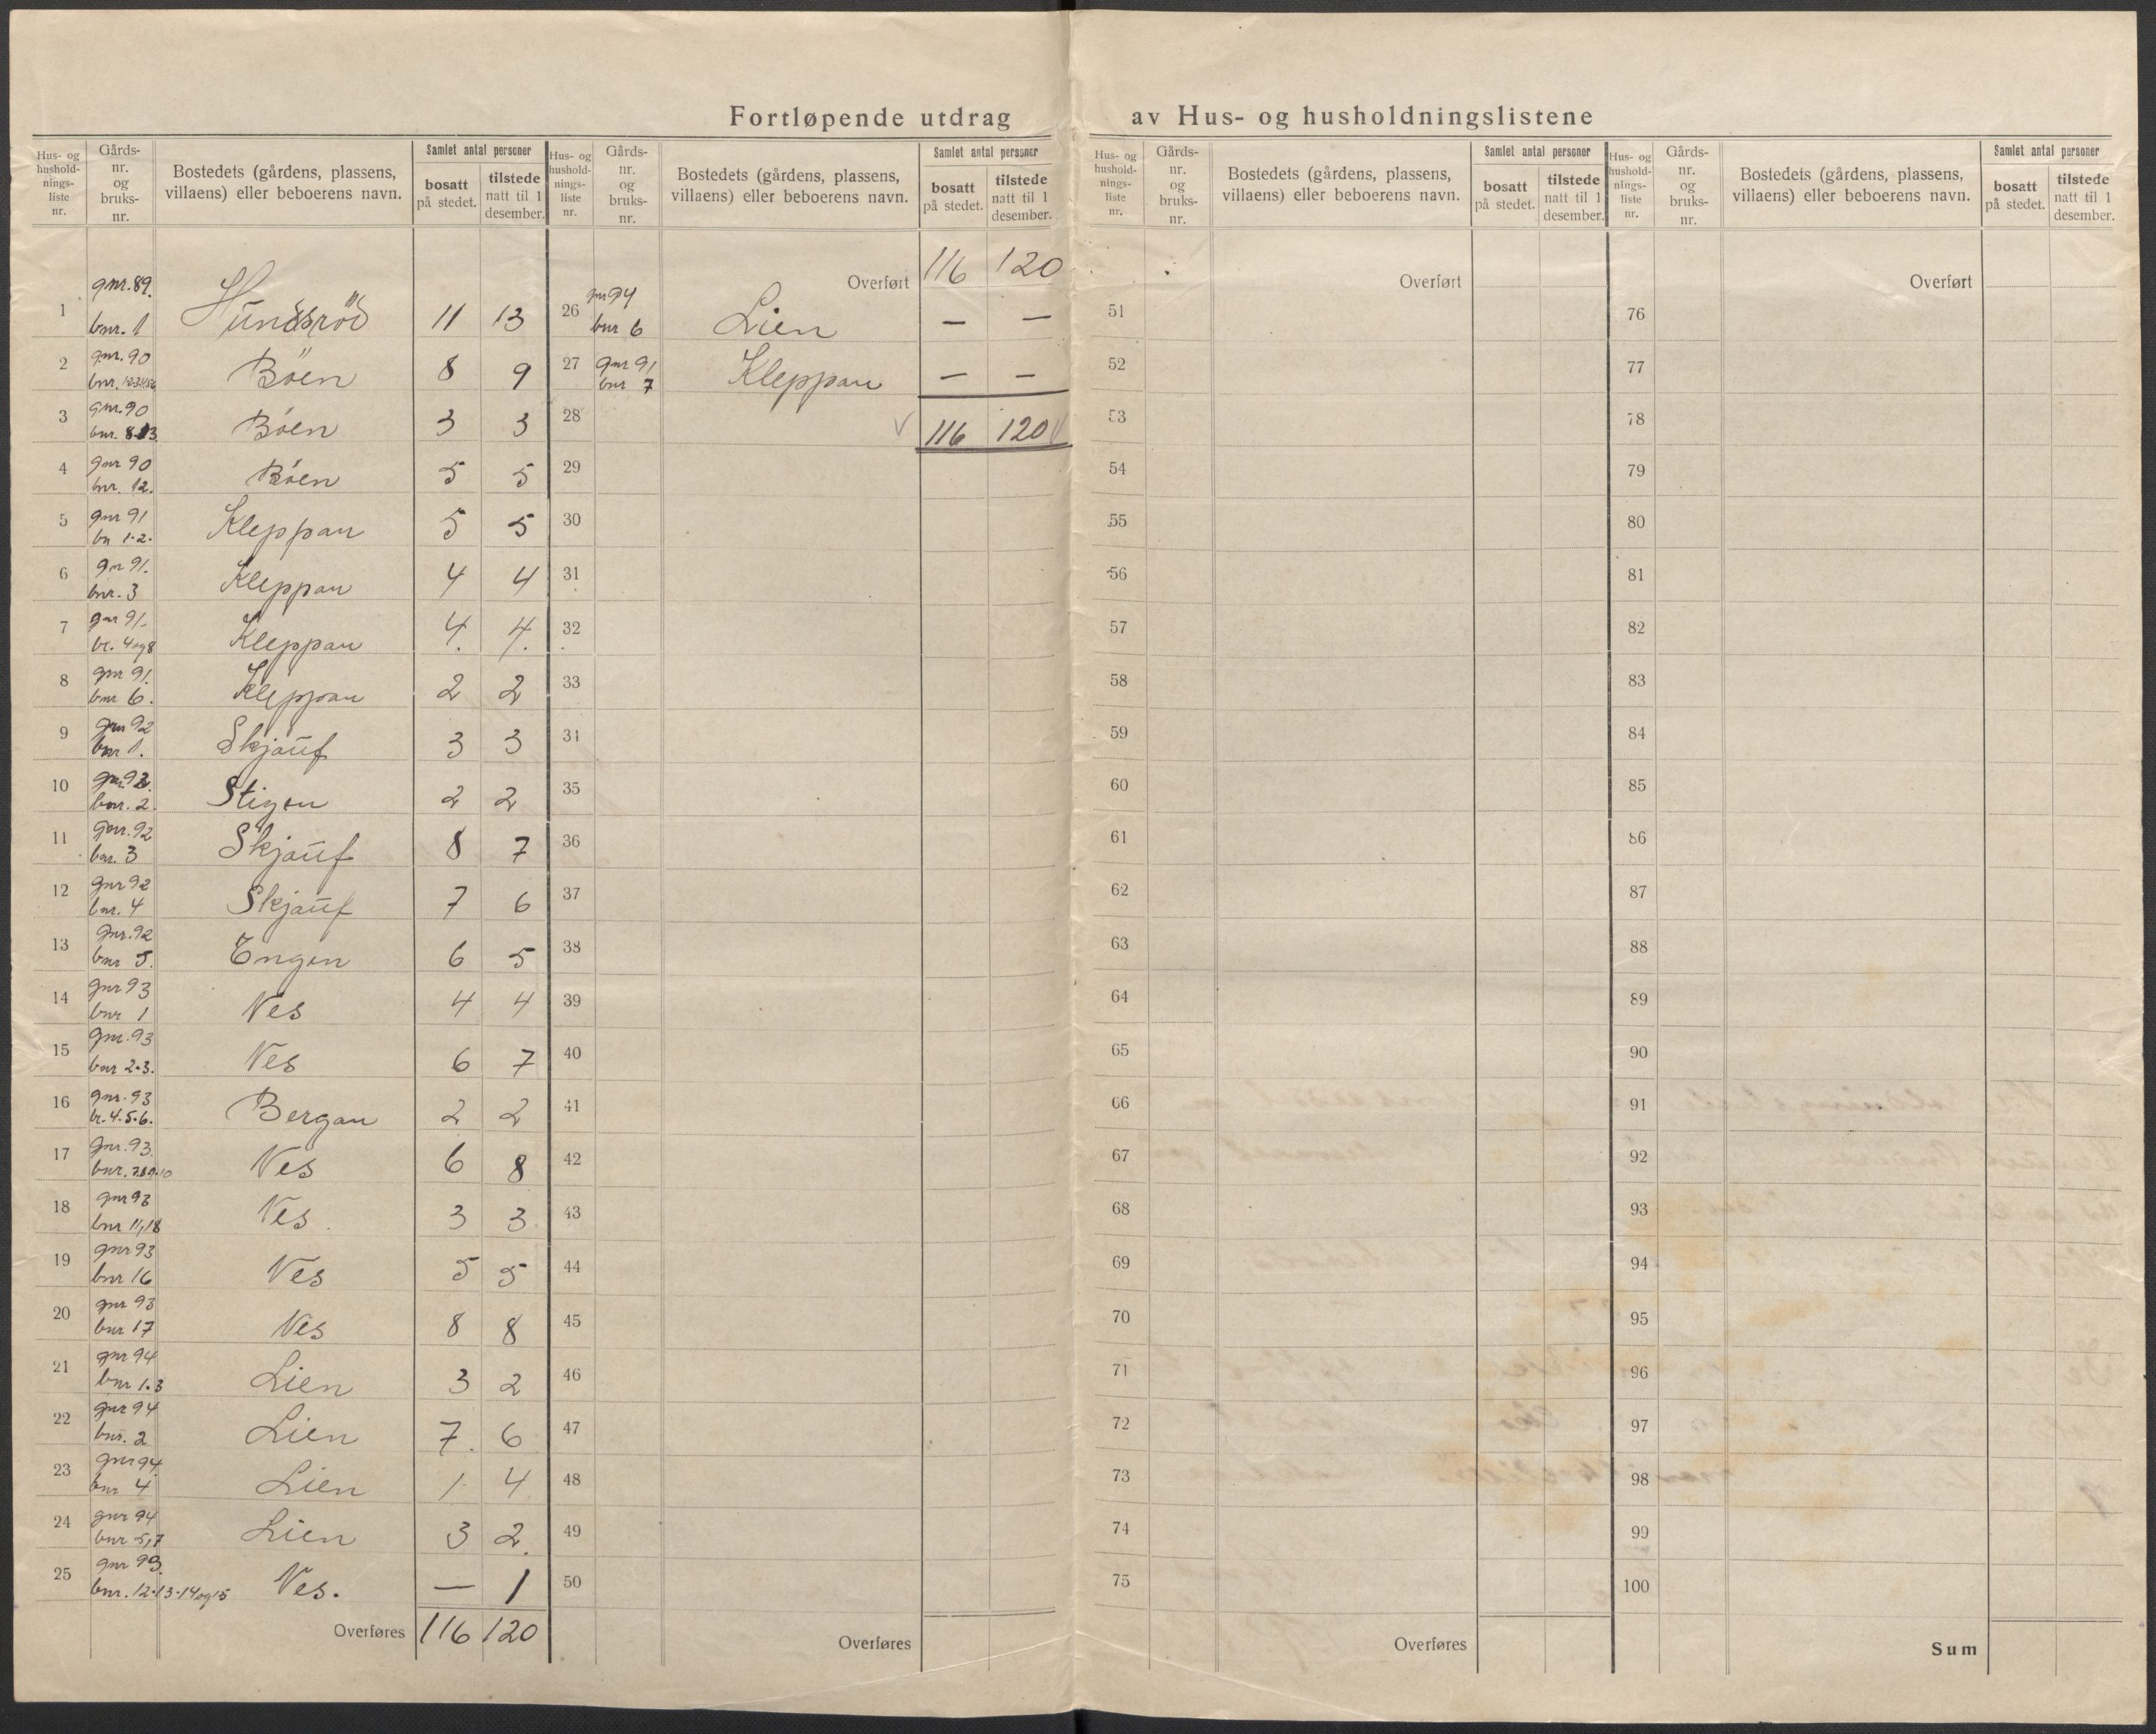 Fortløpende utdrag av Hus- og husholdningslistene
Hus- og husholdnings-liste nr. | Gårds-nr. og bruks-nr. | Bostedets (gårdens, plassens, villaens) eller beboerens navn. | Samlet antal personer | bosatt på stedet. | tilstede natt til 1 desember.
1 | gnr. 89. bnr. 1 | Hundsröd | 11 | 13
2 | gnr. 90 bnr. | Böen | 8 | 9
3 | gnr. 90 bnr. 8. 13. | Böen | 3 | 3
4 | gnr 90 bnr. 12. | Böen | 5 | 5
5 | gnr 91 bn 1-2. | Kleppan | 5 | 5
6 | gnr 91. bnr. 3 | Kleppan | 4 | 4
7 | gnr 91. br. 4 og 8 | Kleppan | 4. | 4.
8 | gnr 91. bnr 6. | Kleppan | 2 | 2
9 | gnr 92 bnr 1. | Skjaüf | 3 | 3
10 | gnr. 92. bnr. 2. | Stigen | 2 | 2
11 | gnr. 92 bnr. 3 | Skjaüf | 8 | 7
12 | gnr 92 bnr. 4 | Skjaüf | 7 | 6
13 | gnr. 92 bnr 5. | Engen | 6 | 5
14 | gnr 93 bnr 1 | Nes | 4 | 4
15 | gnr. 93 bnr 2-3. | Nes | 6 | 7
16 | gnr. 93 br. 4-5-6. | Bergan | 2 | 2
17 | gnr. 93. bnr. 7.8.9.10 | Nes | 6 | 8
18 | gnr 93 bnr 11,18 | Nes. | 3 | 3
19 | gnr 93 bnr 16 | Nes | 5 | 5
20 | gnr 93 bnr 17 | Nes | 8 | 8
21 | gnr 94 bnr 1.3 | Lien | 3 | 2
22 | gnr 94 bnr. 2 | Lien | 7. | 6
23 | gnr 94. bnr 4 | Lien | 1 | 4
24 | gnr 94 bnr 5,7 | Lien | 3 | 2.
25 | gnr 93. bnr. 12-13-14 og 15 | Nes. | — | 1
Overføres | 116 | 120
Hus- og husholdnings-liste nr. | Gårds-nr. og bruks-nr. | Bostedets (gårdens, plassens, villaens) eller beboerens navn. | Samlet antal personer | bosatt på stedet. | tilstede natt til 1 desember.
Overført | 116 | 120
26 | gnr 94 bnr 6 | Lien | — | —
27 | gnr 91 bnr 7 | Kleppan | — | —
28 | 116 | 120
29
30
31
32
33
34
35
36
37
38
39
40
41
42
43
44
45
46
47
48
49
50
Overføres
Hus- og husholdnings-liste nr. | Gårds-nr. og bruks-nr. | Bostedets (gårdens, plassens, villaens) eller beboerens navn. | Samlet antal personer | bosatt på stedet. | tilstede natt til 1 desember.
Overført
51
52
53
54
55
56
57
58
59
60
61
62
63
64
65
66
67
68
69
70
71
72
73
74
75
Overføres
Hus- og husholdnings-liste nr. | Gårds-nr. og bruks-nr. | Bostedets (gårdens, plassens, villaens) eller beboerens navn. | Samlet antal personer | bosatt på stedet. | tilstede natt til 1 desember.
Overført
76
77
78
79
80
81
82
83
84
85
86
87
88
89
90
91
92
93
94
95
96
97
98
99
100
Sum